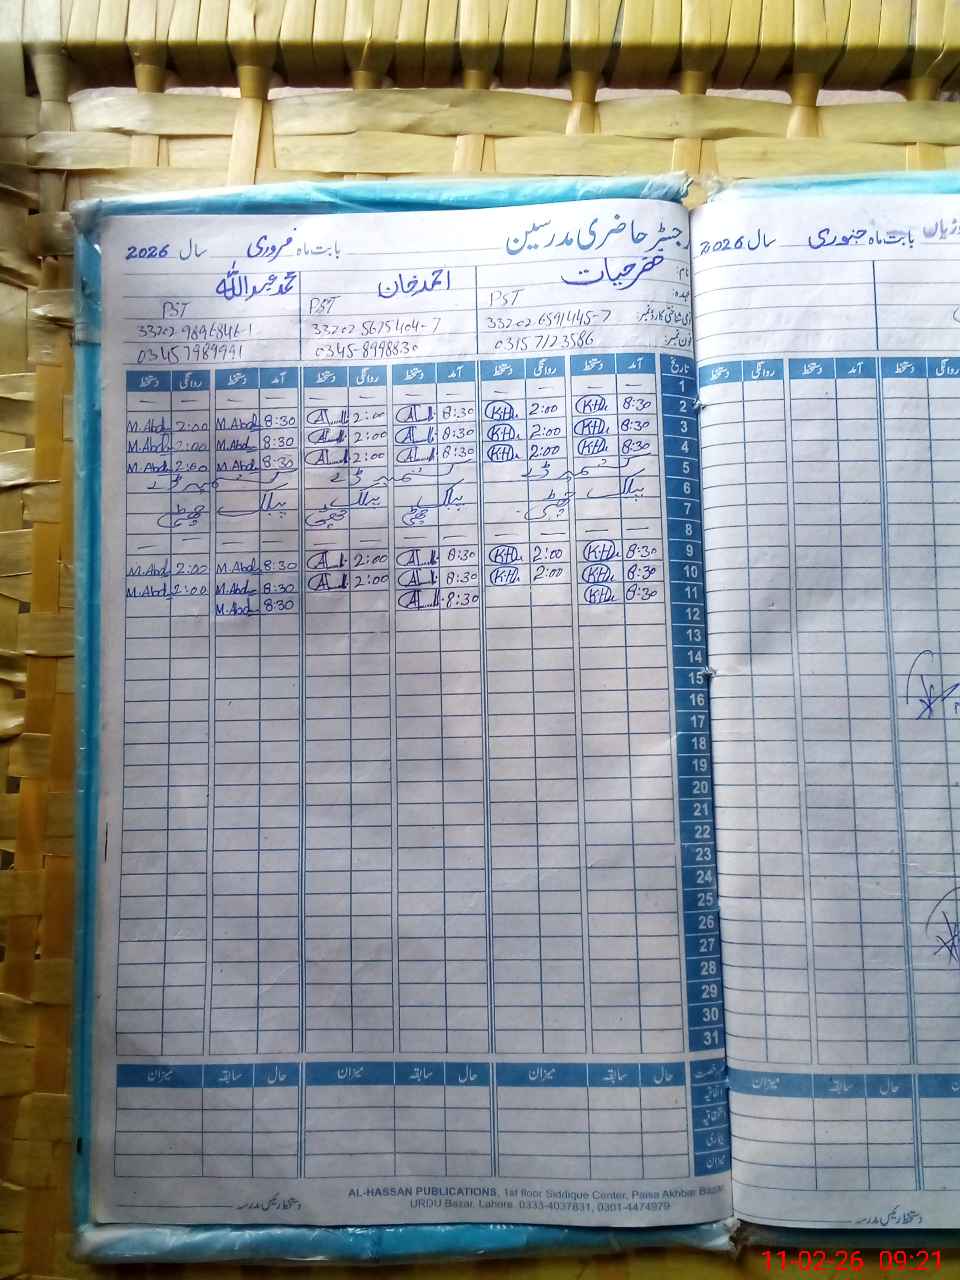 رجسٹر حاضری مدرسین بابت ماہ فروری سال 2026
نام: خضر حیات احمد خان محمد عبداللہ
عہدہ: PST PST PST
33202-6591445-7 33202-5675404-7 33202-9896846-1
فون نمبر: 03157123586 0345-8998830 03457989991
تاریخ آمد دستخط روانگی دستخط آمد دستخط روانگی دستخط آمد دستخط روانگی دستخط
1 — — — — — — — — — — — —
2 8:30 KH. 2:00 KH. 8:30 A 2:00 A 8:30 M.Abd 2:00 M.Abd
3 8:30 KH. 2:00 KH. 8:30 A 2:00 A 8:30 M.Abd 2:00 M.Abd
4 8:30 KH. 2:00 KH. 8:30 A 2:00 A 8:30 M.Abd 2:00 M.Abd
5
6 پبلک پبلک پبلک پبلک
7 چھٹی چھٹی چھٹی چھٹی
8 — — — — — — — — — — — —
9 8:30 KH. 2:00 KH. 8:30 A 2:00 A 8:30 M.Abd 2:00 M.Abd
10 8:30 KH. 2:00 KH. 8:30 A 2:00 A 8:30 M.Abd 2:00 M.Abd
11 8:30 KH. 8:30 A 8:30 M.Abd
12
13
14
15
16
17
18
19
20
21
22
23
24
25
26
27
28
29
30
31
رخصت حال سابقہ میزان حال سابقہ میزان حال سابقہ میزان
اتفاقیہ
بیماری
میزان
AL-HASSAN PUBLICATIONS, 1st floor Siddique Center, Paisa Akhbar Bazar
URDU Bazar, Lahore. 0333-4037831, 0301-4474979
دستخط رئیس مدرسہ
بابت ماہ جنوری سال 2026
روانگی دستخط آمد دستخط روانگی دستخط
حال سابقہ میزان
دستخط رئیس مدرسہ
11-02-26 09:21